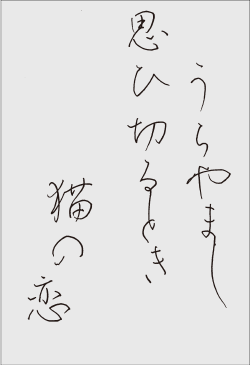 うらやまし
思ひ切るとき
猫の恋